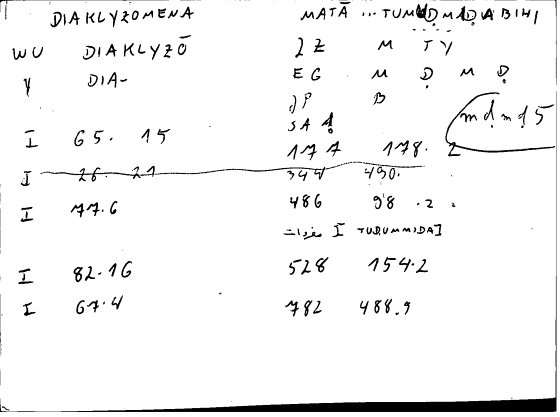 DIAKLYZOMENA MATĀ ... TUMUḌMAḌA BIHI
WU DIAKLYZŌ ] Z M TY
Y DIA- EG M Ḍ M Ḍ
JP B mḍmḍ 5
SA
I 65. 15 177 178. 2
I 26. 21 344 490.
I 77.6 486 98 .2
مفردات I TUDUMMIDA]
I 82.16 528 154.2
I 67.4 782 488.9